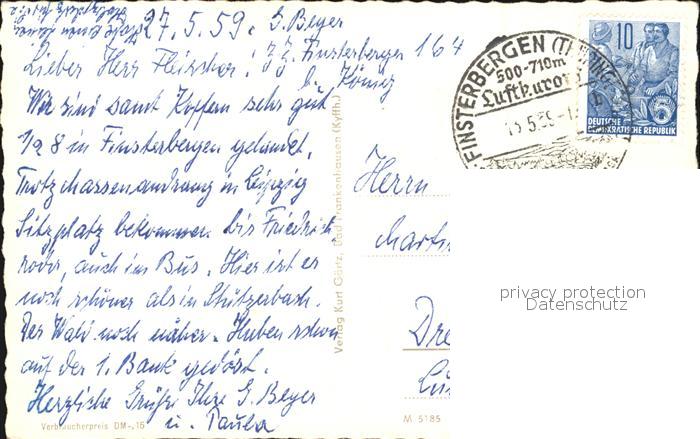 27.5.59. G. Beyer
z. Z. Finsterbergen 164
b. König
Lieber Herr Fleischer!
Wir sind samt Koffern sehr gut
1/2 8 in Finsterbergen gelandet.
Trotz Massenandrang in Leipzig
Sitzplatz bekommen bis Friedrich
roda, auch im Bus. Hier ist es
noch schöner als in Stützerbach.
Der Wald noch näher. Haben schon
auf der 1. Bank gedöst.
Herzliche Grüße Ihre G. Beyer
u. Paula
Verbraucherpreis DM -,15
Verlag Kurt Görtz, Bad Frankenhausen (Kyffh.)
M 5185
Herrn
Dre
FINSTERBERGEN (THÜRING
500-710m
Luftkurort
5.59-1
10
DEUTSCHE
DEMOKRATISCHE REPUBLIK
5
privacy protection
Datenschutz